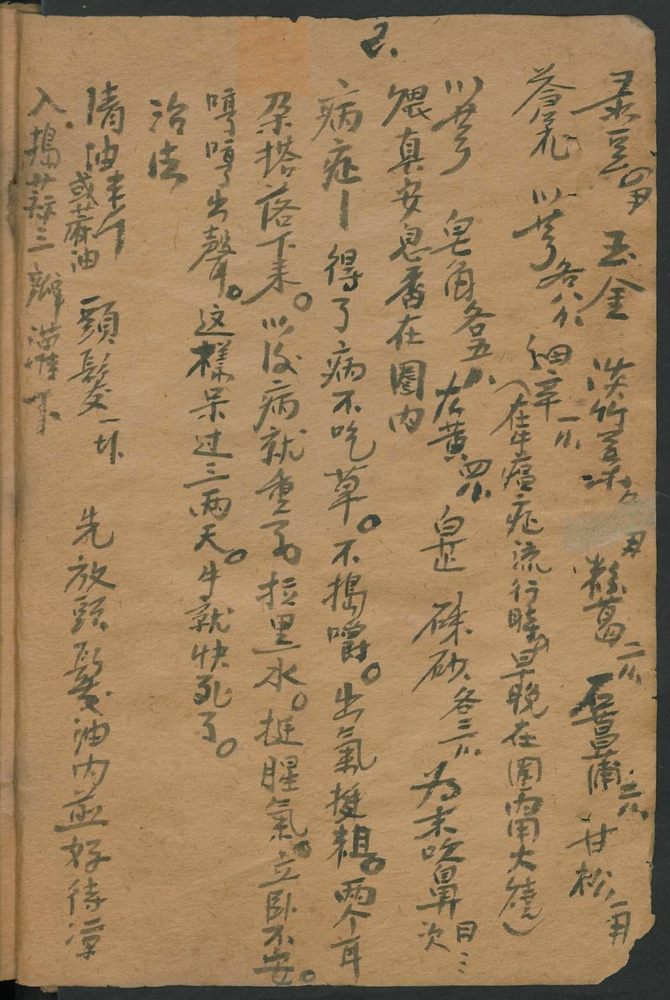 2.
菉豆 玉金 淡竹 粉葛二 石菖蒲 甘松
苍术 川芎各 细辛一
(在牛瘟症流行时,早晚在圈内用火烧)
川芎 皂角各五 大黄四 白芷 硃砂各三 为末吹鼻日三次
猥真安息香在圈内
病症— 得了病不吃草。不搗嚼。出氣挺粗。两个耳
朶搭落下来。以後病就重了拉黑水。挺腥氣。立卧不安。
哼哼出聲。这樣呆过三两天。牛就快死了。
治法
清油半斤 或蔴油 頭髮一
先放頭髮油内煎好待凉
入搗蒜三瓣灌下